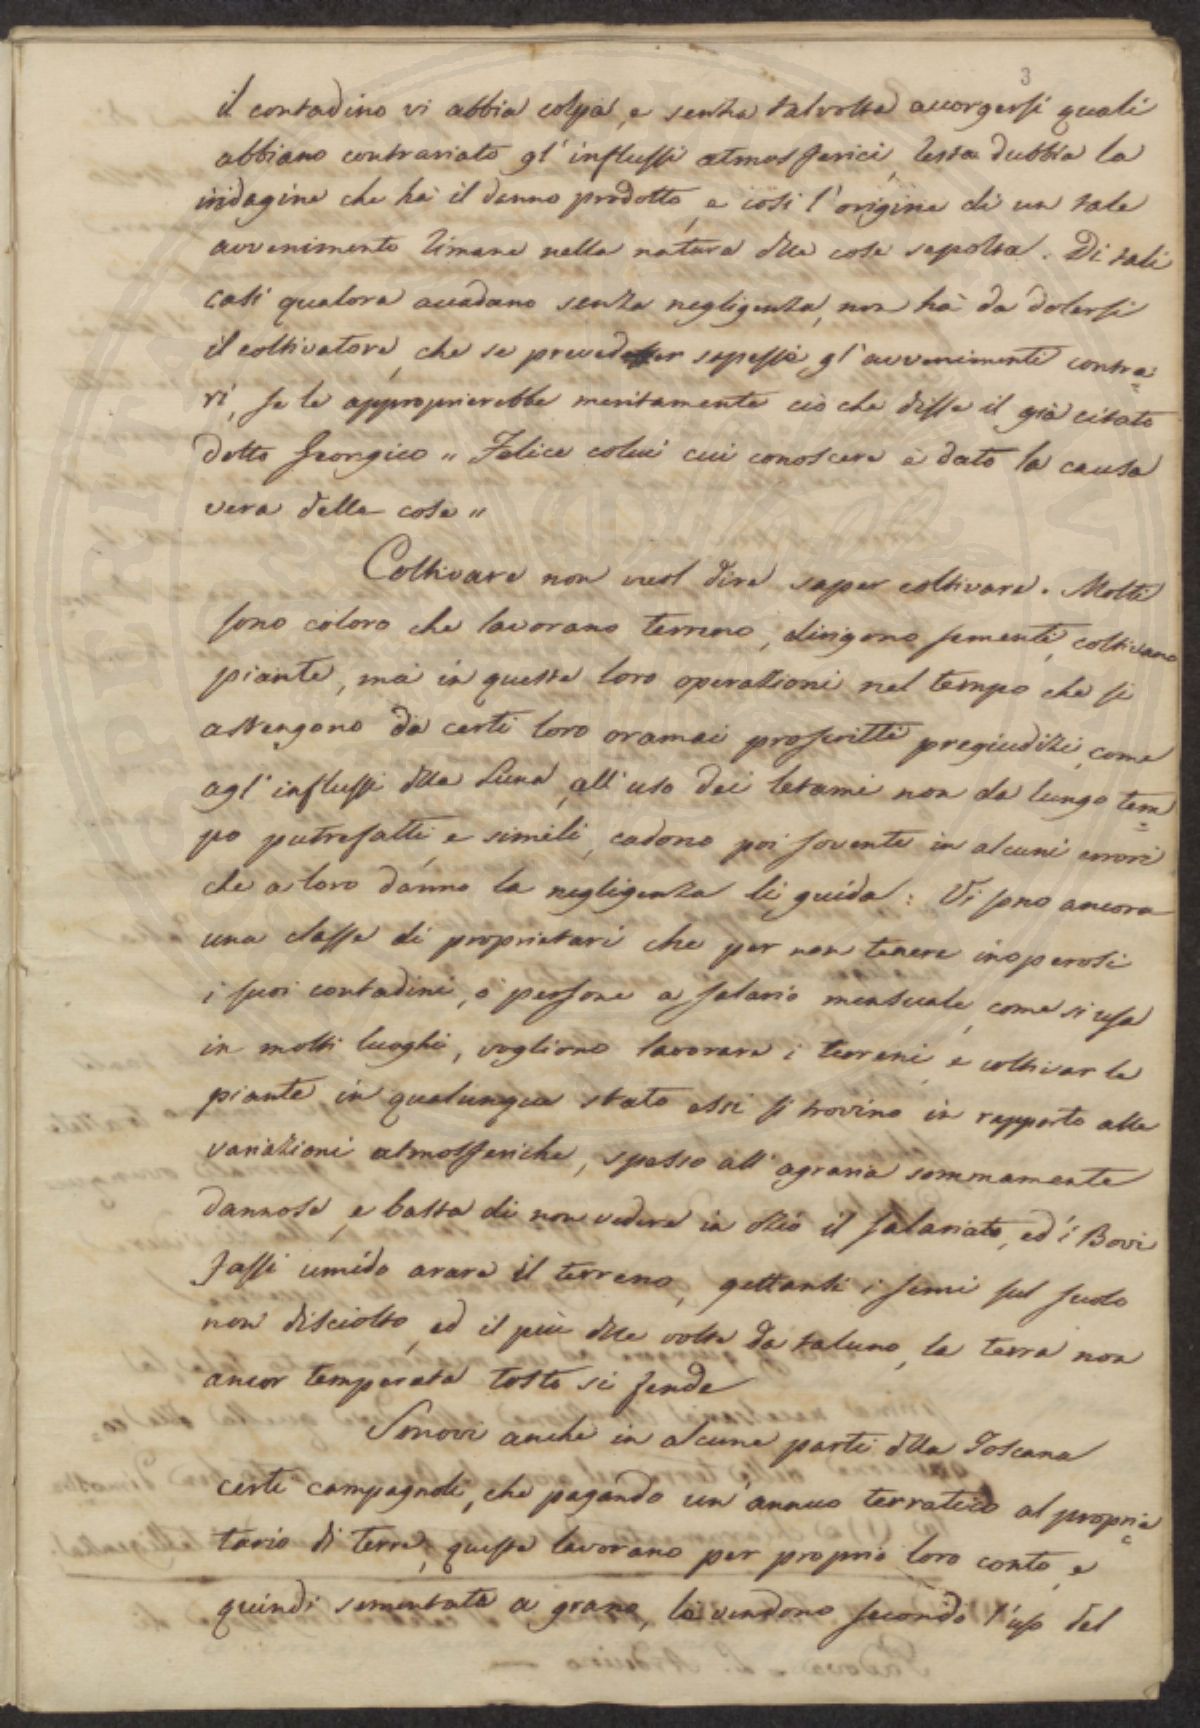 3
il contadino vi abbia colpa, e senza talvolta accorgersi quali
abbiano contrariato gl'influssi atmosferici, resta dubbia la
indagine che hà il danno prodotto, e così l'origine di un tale
avvenimento rimane nella natura dlle cose sepolta. Di tali
casi qualora accadano senza negligenza, non hà da dolersi
il coltivatore, che se preveder sapesse gl'avvenimenti contra=
rî, se le approprierebbe meritamente ciò che disse il già citato
dotto Georgico „ Felice colui cui conoscere è dato la causa
vera delle cose „
Coltivare non vuol dire saper coltivare. Molti
sono coloro che lavorano terreno, dirigono sementi, coltivano
piante, mà in queste loro operazioni nel tempo che si
astengono da certi loro oramai proscritti pregiudizi, come
agl'influssi dlla Luna, all'uso dei letami non da lungo tem=
po putrefatti, e simili, cadono poi sovente in alcuni errori
che a loro danno la negligenza li guida: Vi sono ancora
una classe di proprietari che per non tenere inoperosi
i suoi contadini, o persone a salario mensuale, come si usa
in molti luoghi, vogliono lavorare i terreni, e coltivar le
piante in qualunque stato essi si trovino in rapporto alle
variazioni atmosferiche, spesso all'agraria sommamente
dannose, e basta di non vedere in ozio il salariato, ed i Bovi
fassi umido arare il terreno, gettansi i semi sul suolo
non disciolto, ed il più dlle volte da taluno, la terra non
ancor temperata tosto si fende
Sonovi anche in alcune parti dlla Toscana
certi campagnoli, che pagando un'annuo terratico al proprie=
tario di terre, queste lavorano per proprio loro conto, e
quindi sementate a grano, le vendono secondo l'uso del